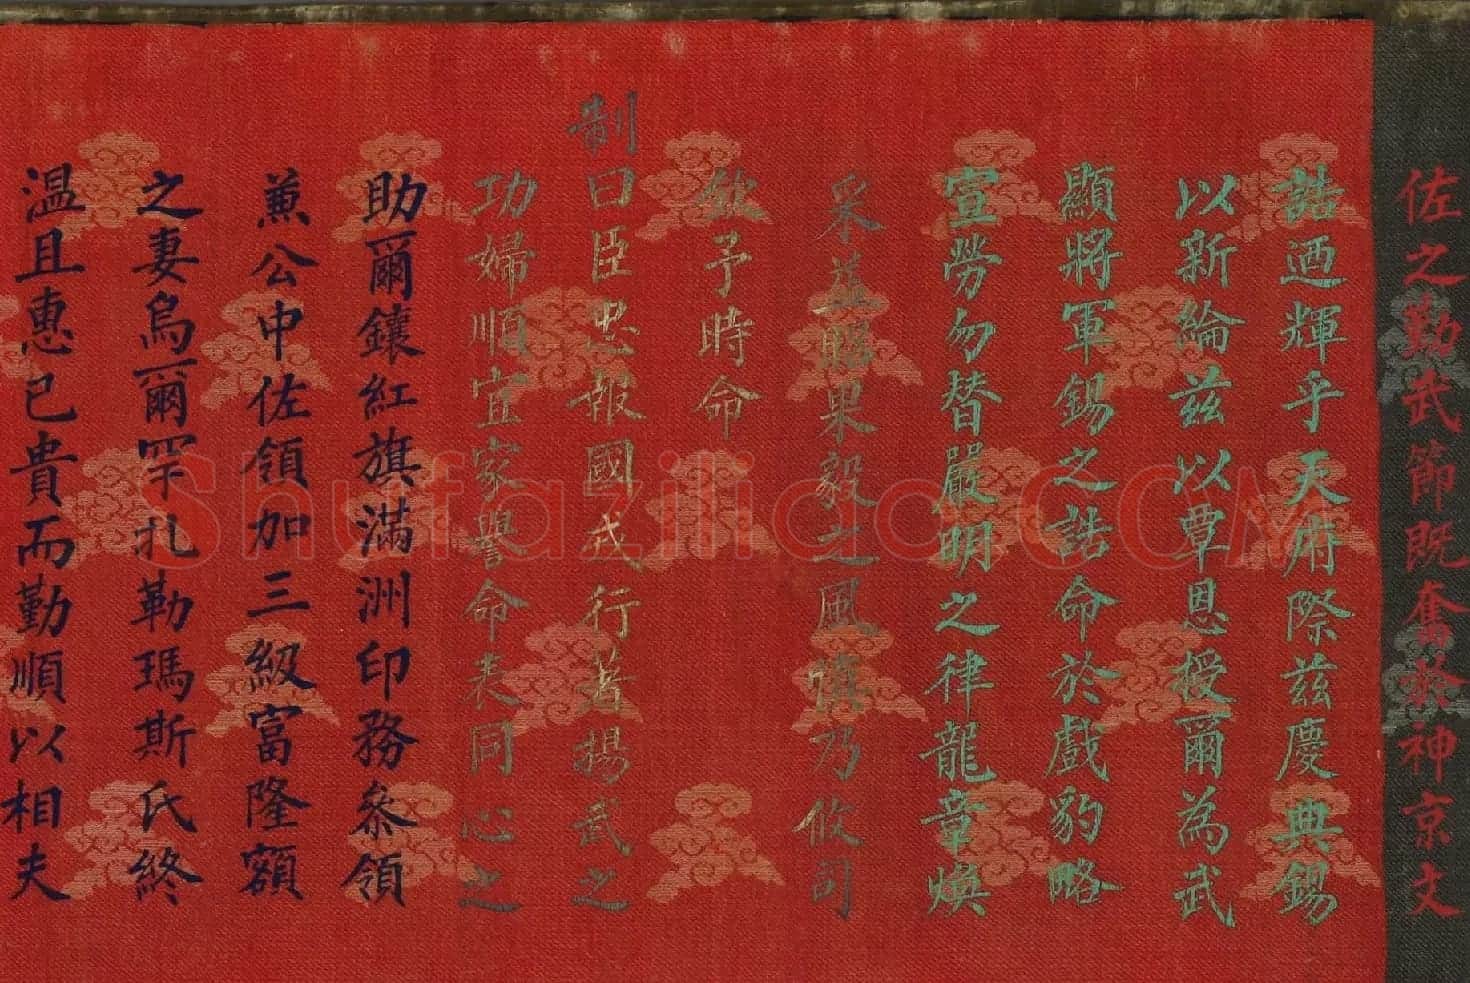 佐之勤武節既奮恭神京文
誥迺輝乎天府際茲慶典錫
以新綸茲以覃恩授爾為武
顯將軍錫之誥命於戲豹略
宣勞勿替嚴明之律龍章煥
采益昭果毅之風慎乃攸司
欽予時命
制曰臣忠報國戎行著揚武之
功婦順宜家譽命表同心之
助爾鑲紅旗滿洲印務叅領
兼公中佐領加三級富隆額
之妻烏爾罕扎勒瑪斯氏終
溫且惠已貴而勤順以相夫
Shufazilida.COM